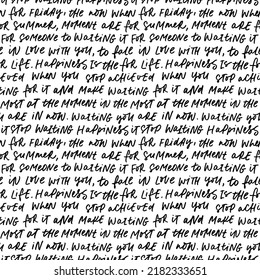 for Friday, the now when for Friday, the now
summer, moment are for summer, moment are
for someone to waiting it for someone to waiting it
in love with you, to fall in love with you, to fall
for life. Happiness is the for life. Happiness is the
achieved when you stop achieved when you stop
for it and make waiting for it and make
most at the moment in the most at the moment in
are in now. waiting you are in now. waiting
it stop waiting Happiness it stop waiting Happiness
for Friday, the now when for Friday, the now
summer, moment are for summer, moment are
for someone to waiting it for someone to waiting it
in love with you, to fall in love with you, to fall
for life. Happiness is the for life. Happiness is the
achieved when you stop achieved when you stop
for it and make waiting for it and make
most at the moment in the most at the moment in
are in now. waiting you are in now. waiting
shutterstock.com · 2182333651